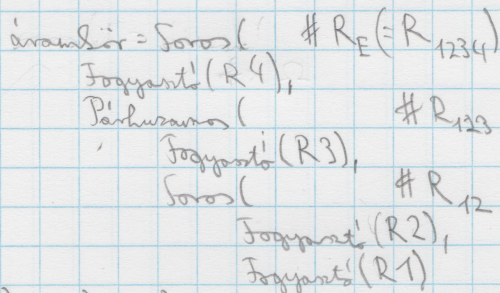 áramkör = Soros( # R_E (= R_1234)
Fogyasztó(R4),
Párhuzamos( # R_123
Fogyasztó(R3),
Soros( # R_12
Fogyasztó(R2),
Fogyasztó(R1)